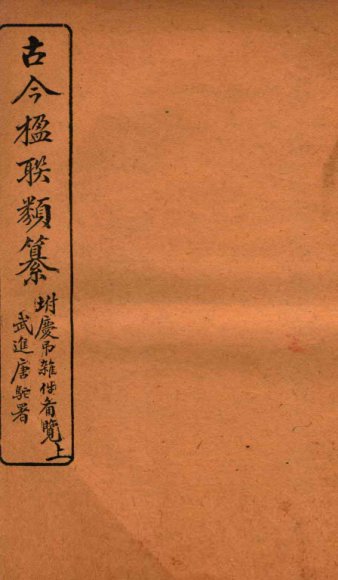 古今楹联類纂
坿慶弔雜件备覽上
武進唐駝署